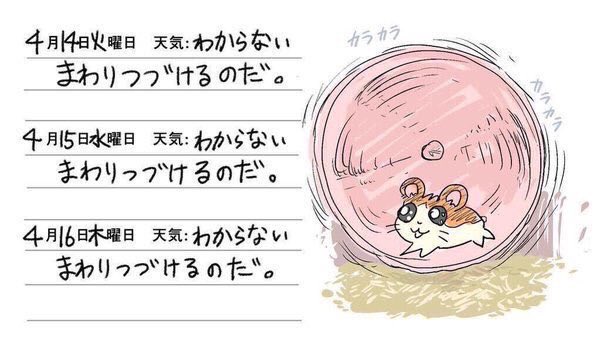 4月14日火曜日 天気:わからない
まわりつづけるのだ。
4月15日水曜日 天気:わからない
まわりつづけるのだ。
4月16日木曜日 天気:わからない
まわりつづけるのだ。
カラカラ
カラカラ